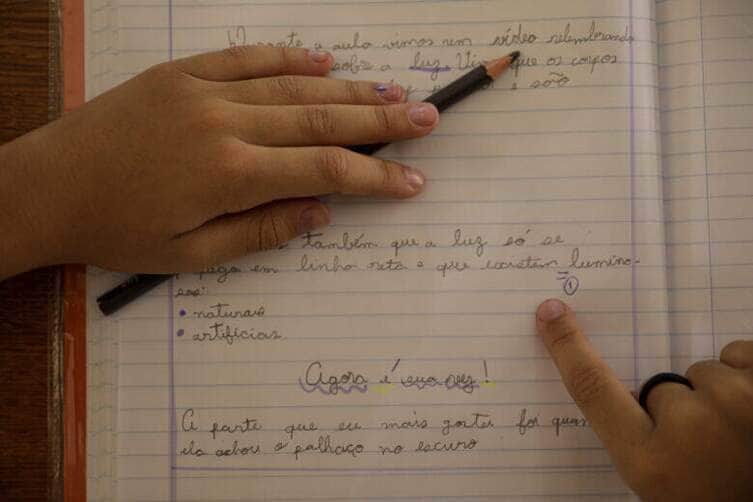 aula vimos um vídeo relembrando
sobre a luz. que os corpos
e são
também que a luz só se
em linha reta e que existem lumino-
sos:
①
• naturais
• artifícias
Agora é sua vez!
A parte que eu mais gostei foi
ela achou o palhaço no escuro